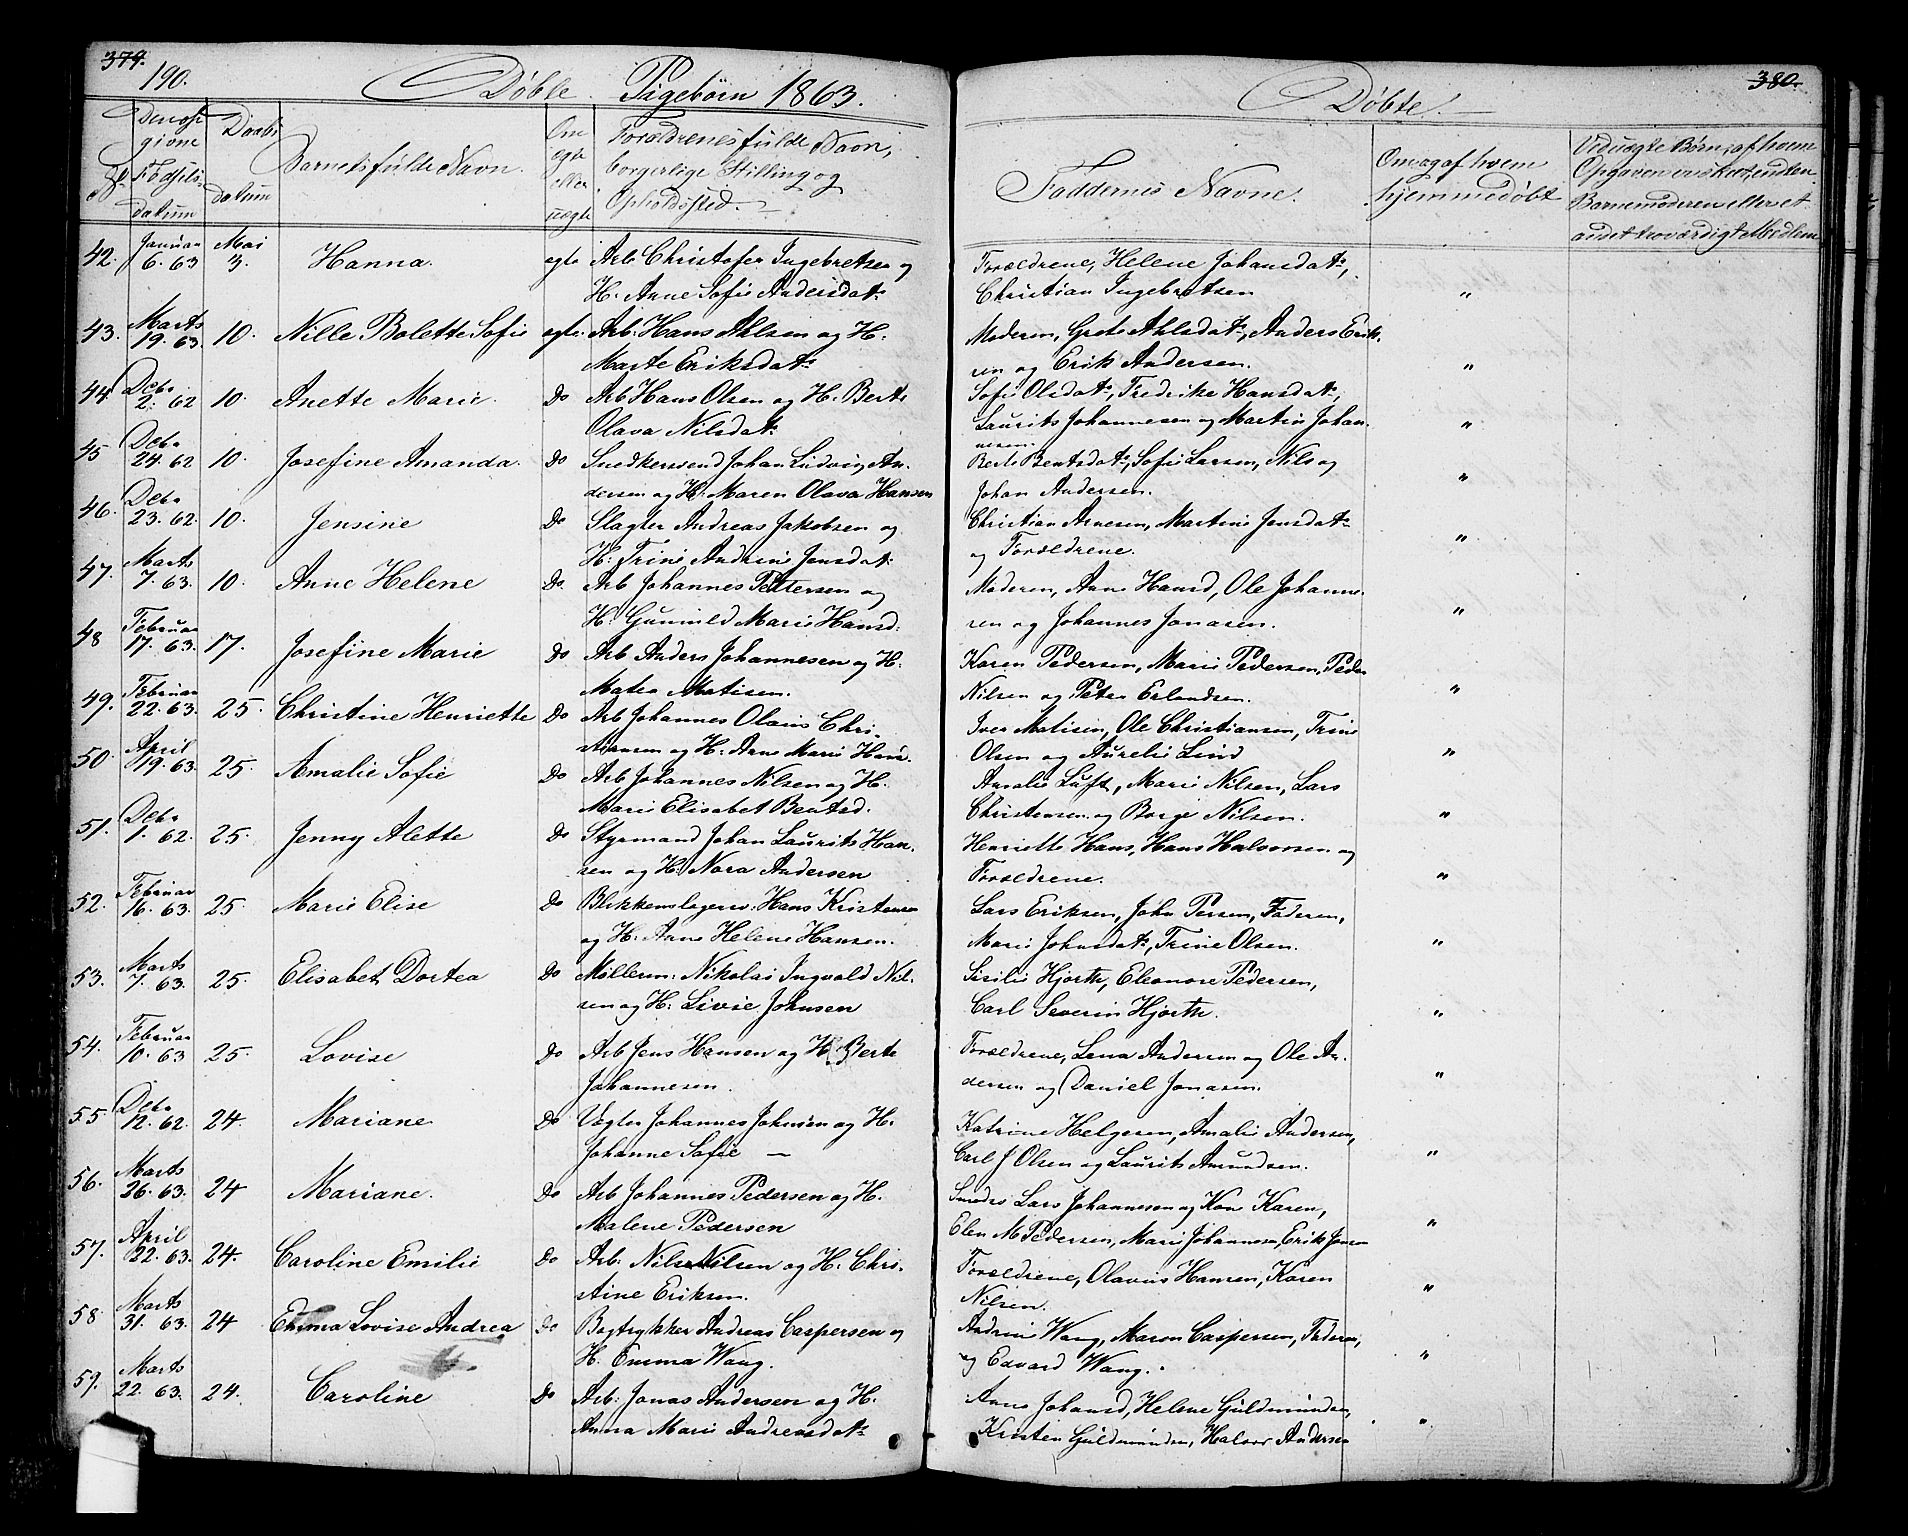 379.
190.
Døbte Pigebørn 1863.
No
Den opgivne Fødselsdatum
Daabsdatum
Barnets fulde Navn.
Om egte eller uægte
Forældrenes fulde Navn, borgerlige Stilling og Opholdssted.
42. Januar 6. 63 Mai 3. Hanna. egte Arb Christofer Ingebretsen og
H. Anne Sofie Andersdatr
43. Marts 19. 63. 10. Nille Bolette Sofie egte. Arb. Hans Ahlsen og H.
Marte Eriksdatr
44. Debr 2. 62 10. Anette Marie. Do Arb Hans Olsen og H. Berte
Olava Nilsdatr
45 Debr 24. 62 10. Josefine Amanda. Do Snedkersvend Johan Ludvig An-
dersen og H. Maren Olava Hansen
46. Debr 23. 62. 10. Jensine Do Slagter Andreas Jakobsen og
H. Trine Andrine Jensdatr
47. Marts 7. 63. 10. Anne Helene Do. Arb Johannes Pettersen og
H. Gunnild Marie Hansd.
48 Februar 17. 63. 17. Josefine Marie Do Arb Anders Johannesen og H.
Matea Matisen.
49. Februar 22. 63. 25. Christine Henriette Do Arb Johannes Olaus Chri-
stiansen og H. Anne Marie Hansd.
50. April 19. 63. 25. Amalie Sofie Do Arb Johannes Nilsen og H.
Marie Elisabet Bentsd.
51. Debr 1. 62. 25. Jenny Alette Do Styrmand Johan Laurits Han-
sen og H. Nora Andersen
52. Februar 16. 63. 25. Marie Elise Do Blikkenslagers. Hans Kristensen
og H. Anne Helene Hansen.
53. Marts 7. 63. 25. Elisabet Dortea Do Møllerm: Nikolai Ingvald Nil-
sen og H. Livie Johnsen
54. Februar 10. 63 25. Lovise Do Arb Jens Hansen og H. Berte
Johannesen.
55 Debr 12. 62. 24. Mariane Do Vægter Johannes Johnsen og H.
Johanne Sofie —
56. Marts 26. 63. 24 Mariane. Do Arb Johannes Pedersen og H.
Malene Pedersen
57. April 22. 63. 24. Caroline Emilie Do Arb. Nils Nilsen og H. Chri-
stine Eriksen.
58 Marts 31. 63. 24 Emma Lovise Andrea Do Bogtrykker Andreas Caspersen og
H. Emma Wang.
59. Marts 22. 63. 24. Caroline Do Arb. Jonas Andersen og H.
Anna Marie Andreasdatr
380.
Døbte.
Faddernes Navne.
Om og af hvem hjemmedøbt
Ved uægte Børn, af hvem Opgaven er skeet, enten Barnemoderen eller et andet troværdigt Medlem
Forældrene, Helene Johansdatr,
Christian Ingebretsen "
Moderen, Grete Ahlsdatr, Anders Erik-
sen og Erik Andersen. "
Sofie Olsdatr, Fredrike Hansdatr,
Laurits Johannesen og Martin Johan- "
nesen.
Berte Bentsdatr, Sofie Larsen, Nils og
Johan Andersen. "
Christian Arnesen, Martine Jensdatr
og Forældrene. "
Moderen, Anne Hansd, Ole Johanne-
sen og Johannes Jonasen. "
Karen Pedersen, Marie Pedersen, Peder
Nilsen og Peter Erlandsen. "
Iver Matisen, Ole Christiansen, Trine
Olsen og Aurelie Lind "
Amalie Luft, Marie Nilsen, Lars
Christensen og Borge Nilsen. "
Henriette Hans, Hans Halvorsen og
Forældrene. "
Lars Eriksen, John Persen, Faderen,
Marie Johnsdatr, Trine Olsen. "
Sisilie Hjorth, Eleonore Pedersen,
Carl Severin Hjorth. "
Forældrene, Lena Andersen og Ole An-
dersen og Daniel Jonasen. "
Katrine Helgesen, Amalie Andersen,
Carl J Olsen og Laurits Amundsen. "
Smedes Lars Johannesen og Kone Karen,
Elen M Pedersen, Marie Johannesen, Erik Jensen "
Forældrene, Olavus Hansen, Karen
Nilsen. "
Andrine Wang, Maren Caspersen, Faderen,
og Edvard Wang. "
Anne Johansd, Helene Guldmundsen,
Kristen Guldmundsen, Halvor Andersen "